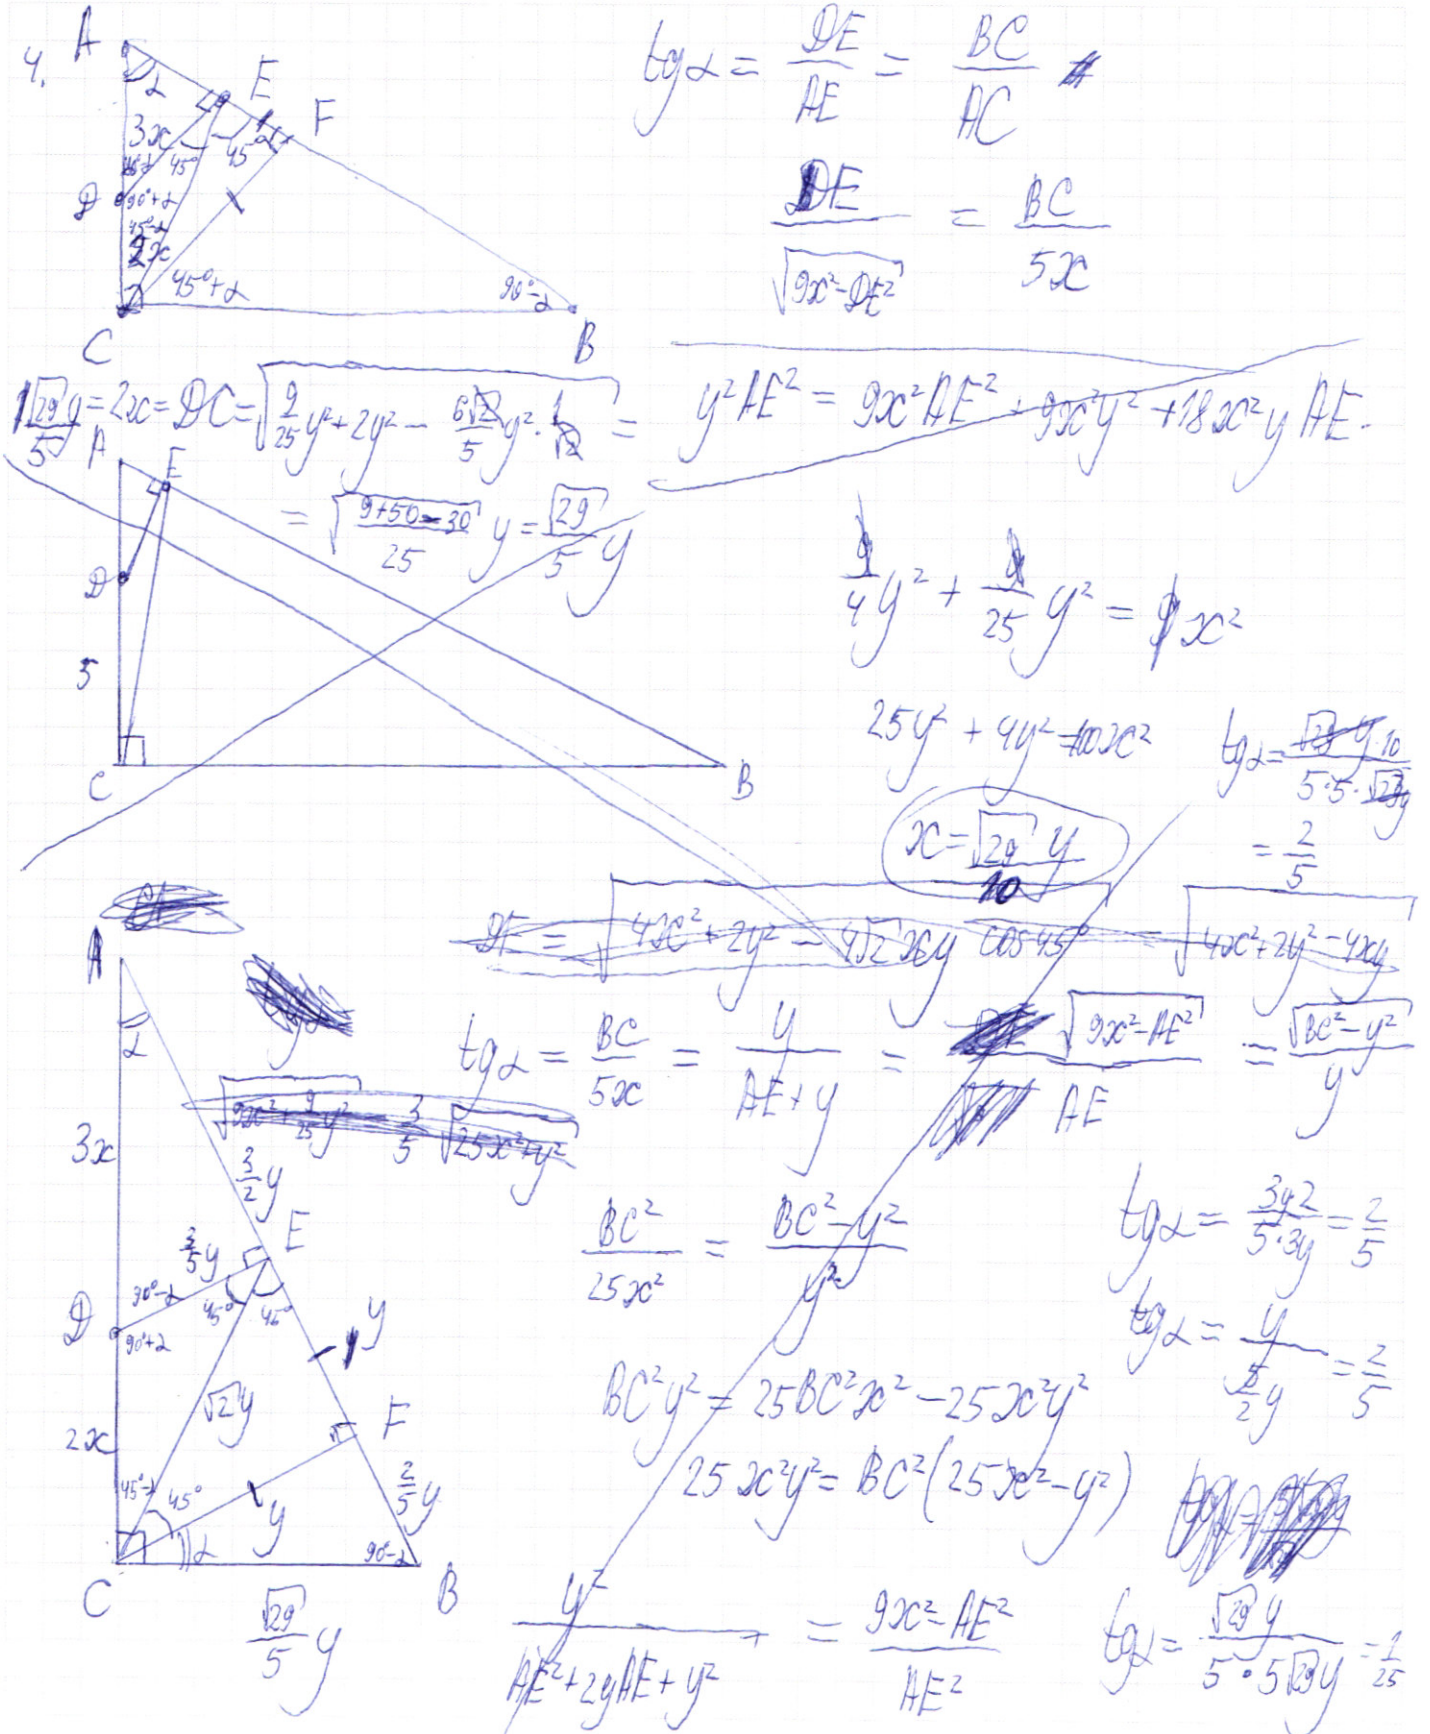 4.
A
α
E
F
3x
45°
45°
D
90°+α
45°-α
2x
45°+α
90°-α
C
B
tgα = DE/AE = BC/AC
DE/√(9x²-DE²) = BC/5x
√29/5 y = 2x = DC = √(9/25 y² + 2y² - 6√2/5 y² · 1/√2) =
= √((9+50-30)/25) y = √29/5 y
y²AE² = 9x²AE² + 9x²y² + 18x²y AE ·
A
E
D
5
C
B
1/4 y² + 1/25 y² = x²
25y² + 4y² = 100x²
x = √29 y/10
tgα = √29 y·10/5·5·√29y
= 2/5
DE = √(4x² + 2y² - 4√2 xy cos45°) = √(4x² + 2y² - 4xy)
A
α
3x
3/2 y
E
3/5 y
90°-α
45°
45°
D
90°+α
y
√2 y
2x
F
45°-α
45°
y
2/5 y
α
90°-α
C
B
√29/5 y
tgα = BC/5x = y/(AE+y) = √(9x²-AE²)/AE = √(BC²-y²)/y
BC²/25x² = (BC²-y²)/y²
tgα = 3y2/5·3y = 2/5
tgα = y/(5/2 y) = 2/5
BC²y² = 25BC²x² - 25x²y²
25x²y² = BC²(25x²-y²)
y²/(AE²+2yAE+y²) = (9x²-AE²)/AE²
tgα = √29 y/5·5√29y = 1/25